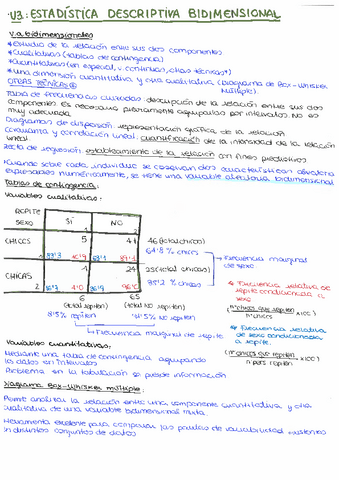 U3: ESTADÍSTICA DESCRIPTIVA BIDIMENSIONAL
V.a. bidimensionales
*Estudio de la relación entre sus dos componentes
*Cualitativas (tablas de contingencia)
*Cuantitativas (en especial, v. continuas, otras técnicas*)
*una dimensión cuantitativa y otra cualitativa (Diagrama de Box-Whisker Múltiple).
OTRAS TÉCNICAS
Tabla de frecuencias cruzadas: descripción de la relación entre sus dos
componentes. Es necesario previamente agruparlos por intervalos. No es
muy adecuada
Diagramas de dispersión: representación gráfica de la relación
Covarianza y correlación lineal: cuantificación de la intensidad de la relación
lineal.
Recta de regresión: establecimiento de la relación con fines predictivos
*Cuando sobre cada individuo se observan dos características aleatorias
expresables numéricamente, se tiene una variable aleatoria bidimensional
Tablas de contingencia:
Variables cualitativas:
REPITE SÍ NO
SEXO 1 2
CHICOS 5 41 46 (total chicos)
1 64'8% chicos
CHICAS 1 24 25 (total chicas)
2 35'2% chicas
6 65
(total repiten) (total NO repiten)
8'5% repiten 91'5% NO repiten
Frecuencia marginal de sexo
Frecuencia relativa de repite condicionada a sexo
(nºchicos que repiten x100)
nºchicos
Frecuencia relativa de sexo condicionada a repite
(nºchicos que repiten x100)
nºpers repiten
Frecuencia marginal de repite
Variables cuantitativas:
Mediante una tabla de contingencia agrupando
los datos en intervalos
Problema en la tabulación se pierde información
Diagrama Box-Whisker múltiple:
Permite analizar la relación entre una componente cuantitativa y otra
cualitativa de una variable bidimensional mixta.
Herramienta excelente para comparar las pautas de variabilidad existentes
en distintos conjuntos de datos